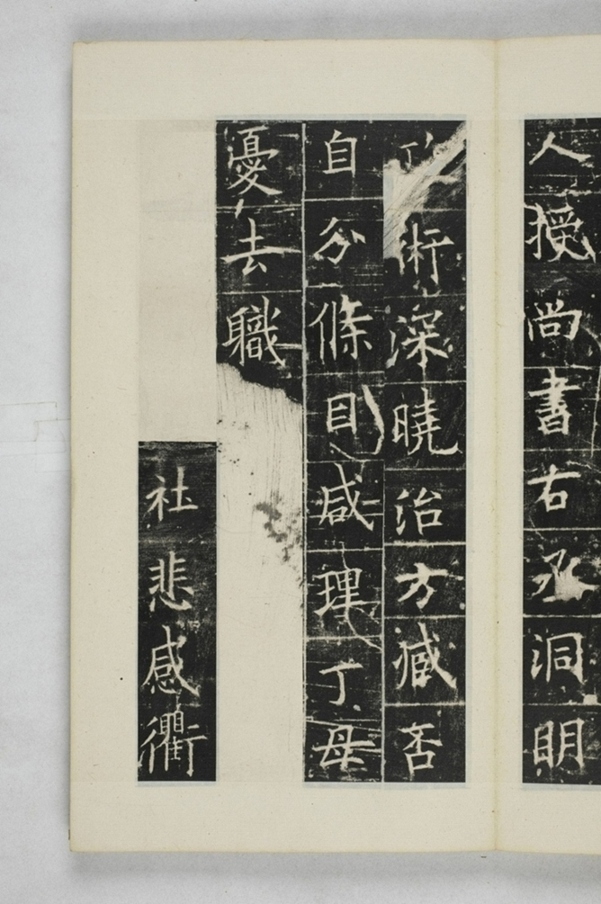 人授尚書右丞洞明
術深曉治方臧否
自分條目咸理丁母
憂去職
社悲感衢